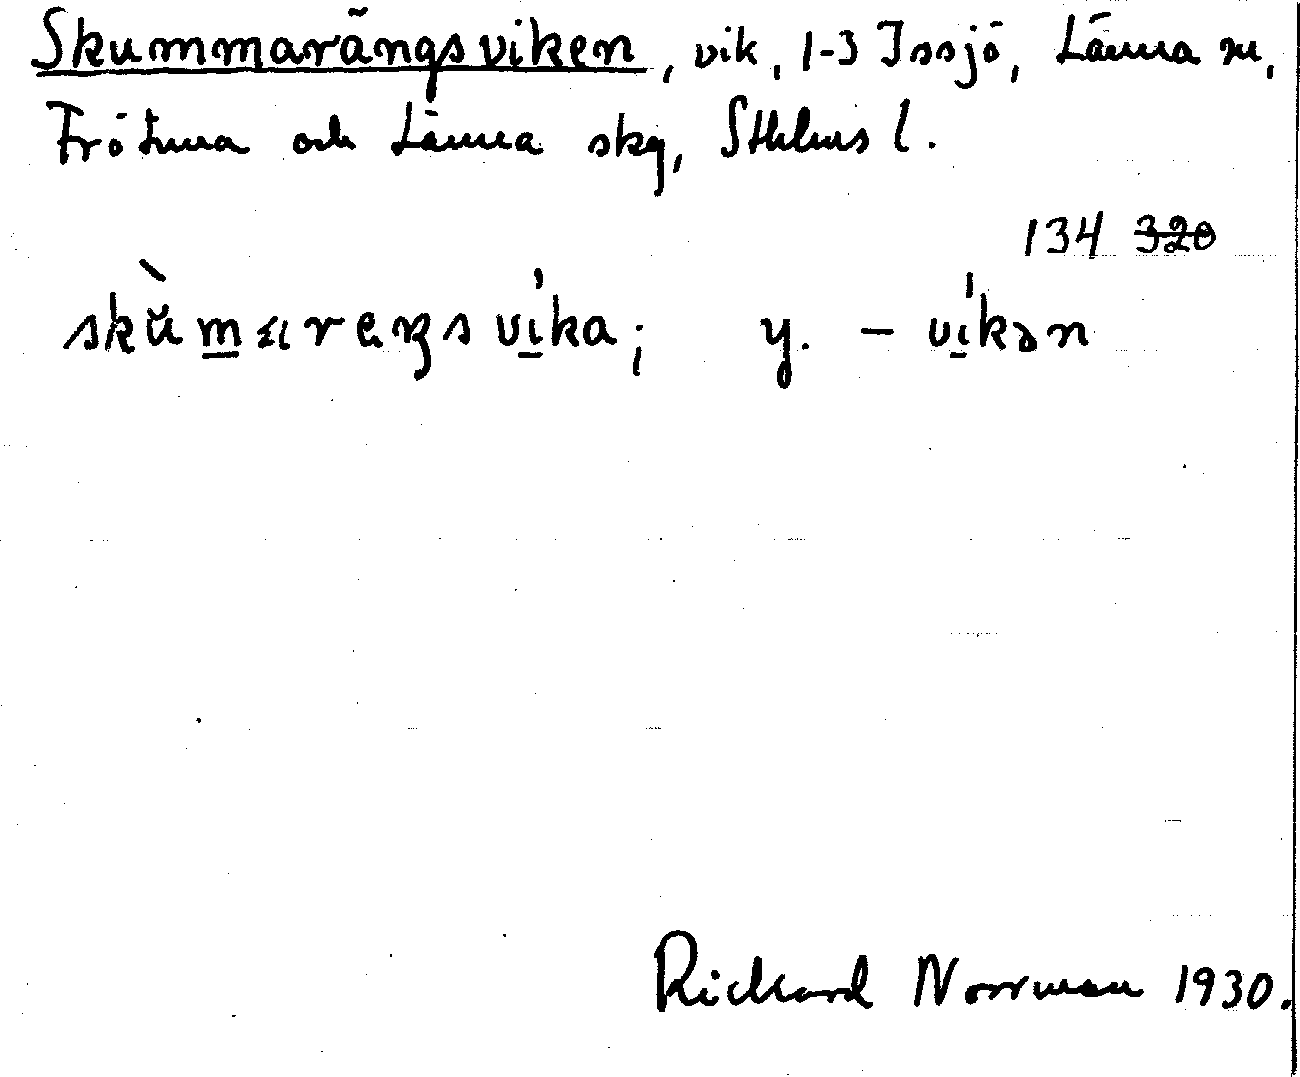 Skummarängsviken, vik, 1-3 Issjö, Länna sn,
Frötuna och Länna skg, Sthlms l.
134 ~~320~~
skùmaraŋsvika; y. – vikən
Rickard Norrman 1930.